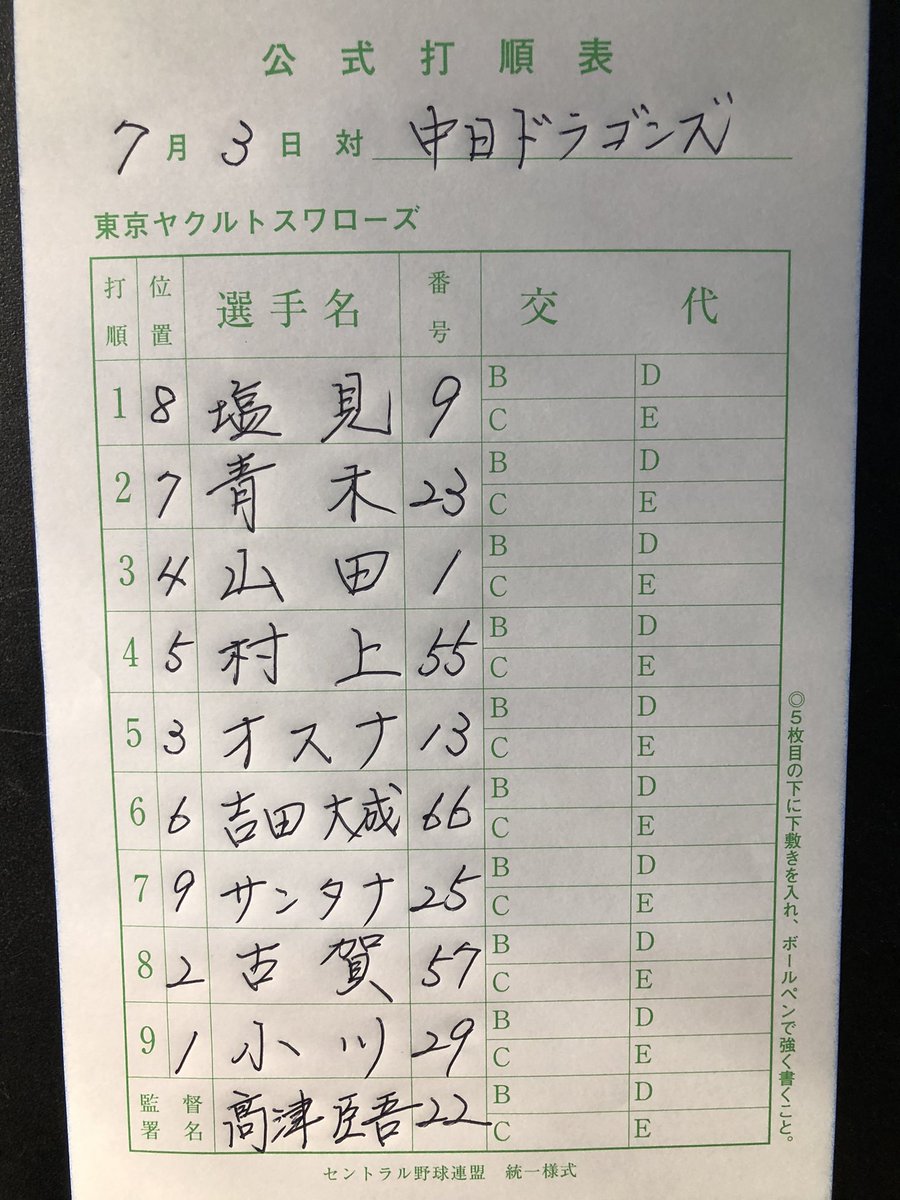 公式打順表
7月3日対 中日ドラゴンズ
東京ヤクルトスワローズ
打順 位置 選手名 番号 交代
1 8 塩見 9 B D
C E
2 7 青木 23 B D
C E
3 4 山田 1 B D
C E
4 5 村上 55 B D
C E
5 3 オスナ 13 B D
C E
6 6 吉田大成 66 B D
C E
7 9 サンタナ 25 B D
C E
8 2 古賀 57 B D
C E
9 1 小川 29 B D
C E
監督署名 高津臣吾 22 B D
C E
◎5枚目の下に下敷きを入れ、ボールペンで強く書くこと。
セントラル野球連盟 統一様式